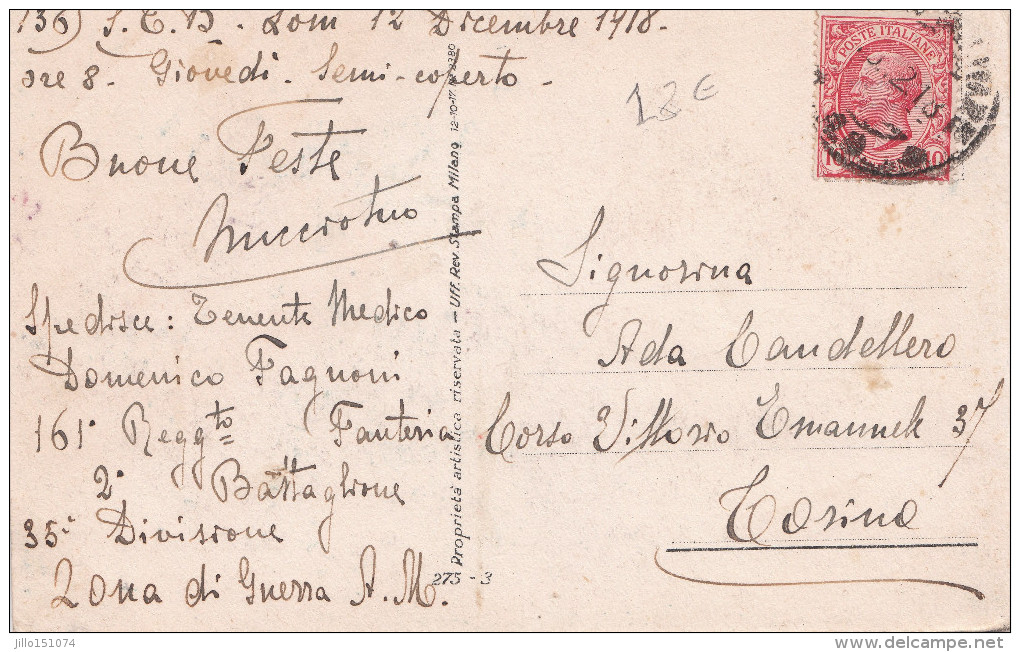 136) S.C.B. Lom 12 Dicembre 1918.
ore 8 - Giovedì - Semi-coperto -
Buone Feste
Spedisce: Tenente Medico
Domenico Fagnoni
161° Regg.to Fanteria
2° Battaglione
35ª Divisione
Zona di Guerra A.M.
Proprietà artistica riservata - Uff. Rev. Stampa Milano 12-10-17
275 - 3
18 €
POSTE ITALIANE
10 10
Signorina
Ada Candellero
Corso Vittorio Emanuele 37
Torino
jillo151074
www.delcampe.net